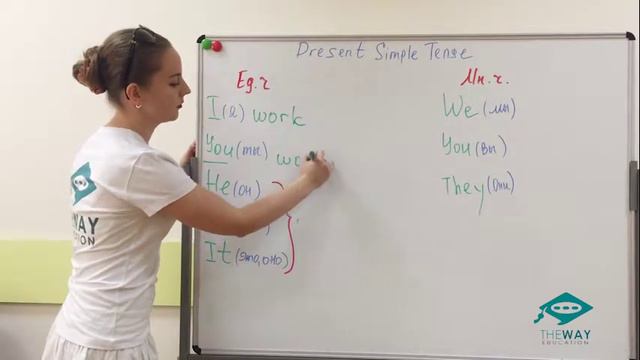 Present Simple Tense
Ед.ч
I (я) work
You (ты) wo
He (он)
It (это, оно)
Мн.ч.
We (мы)
You (вы)
They (они)
THE WAY
EDUCATION
THEWAY
EDUCATION